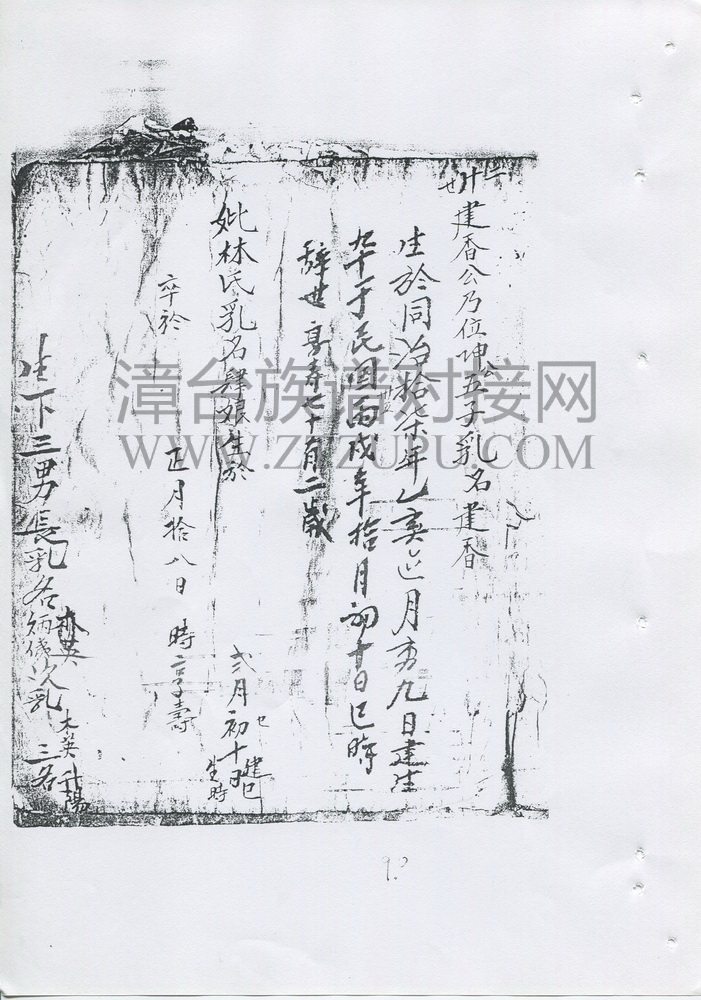 廿世
建香公乃位坤公五子乳名建香
生於同治拾柒年乙亥正月初九日建生
卒于民国丙戌年拾月初十日巳時
辞世享寿七十有二歲
妣林氏乳名肆娘生於 弍月初十日 建巳時生
卒於 正月拾八日 時享壽
生下三男長乳名炳儀次乳 木英 三名 升陽
漳台族谱对接网
WWW.ZTZUPU.COM